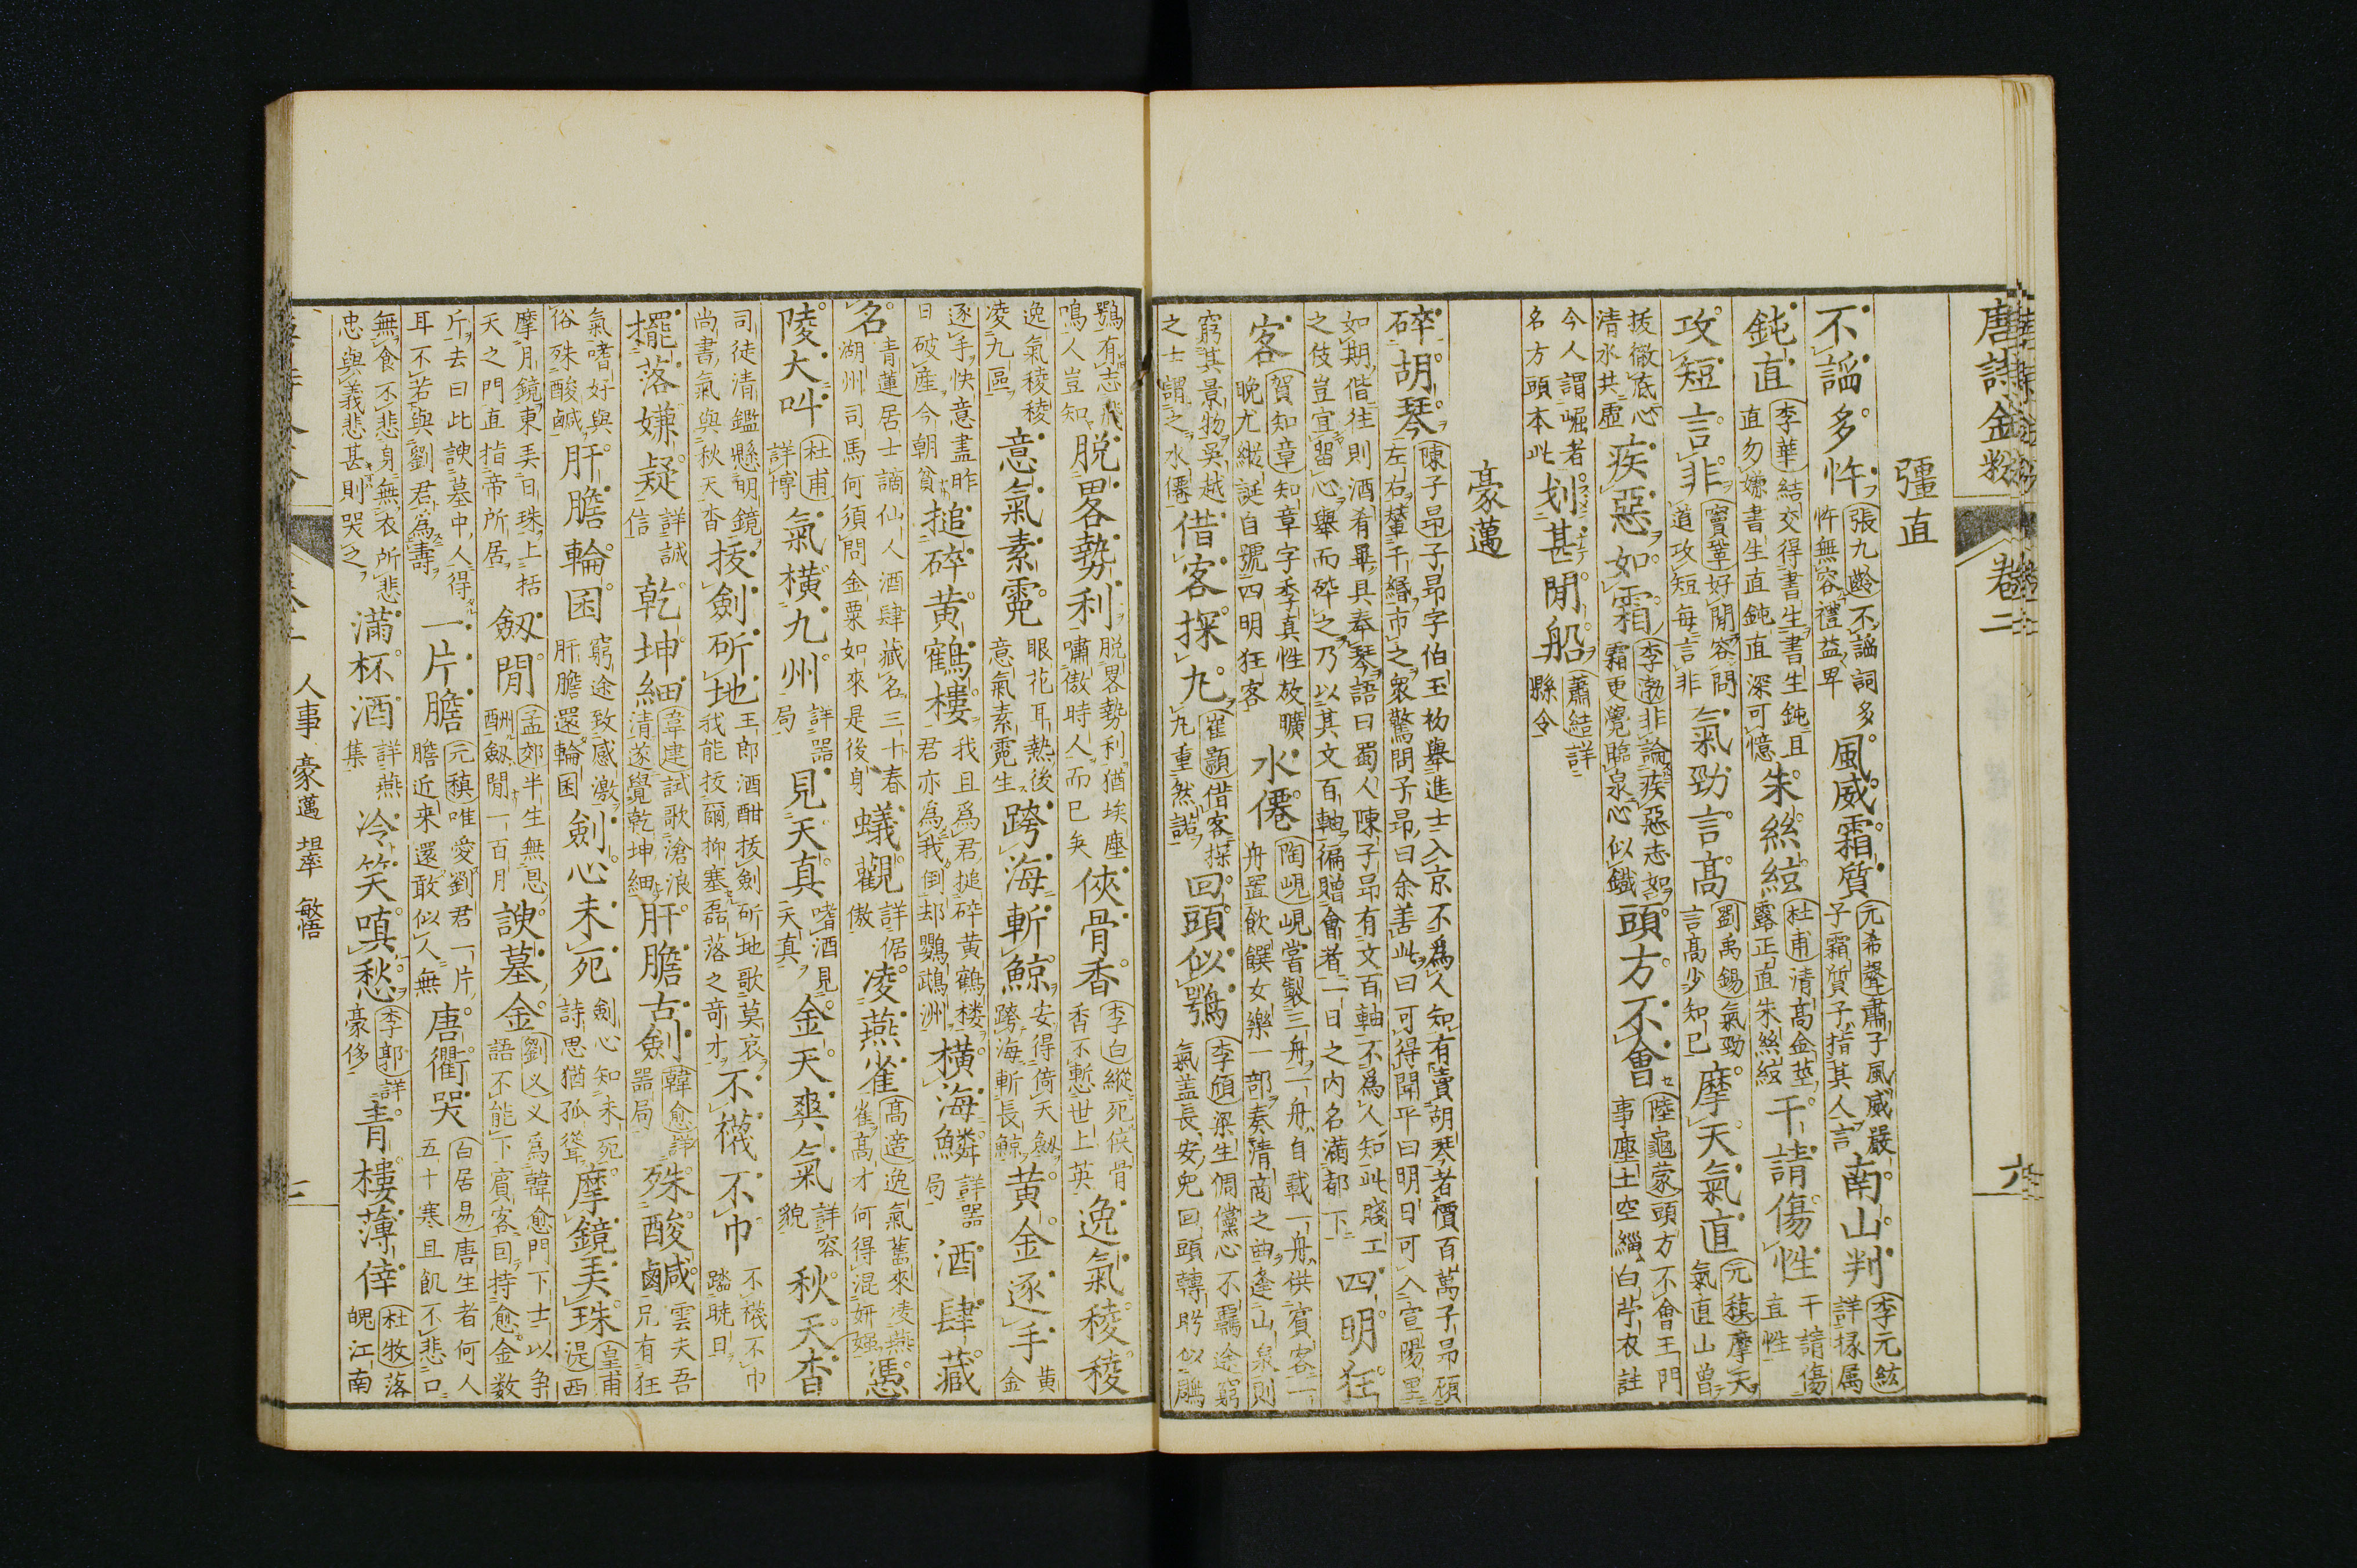 唐詩金粉 卷二 六
彊直
不謟多忤 張九齡 不謟詞多忤無容禮益卑 風威霜質 元希聲 肅子風威嚴子霜質子指其人言 南山判 李元紘 詳掾属
鈍直 李華 結交得書生書生鈍且直勿嫌書生直鈍直深可憶 朱絲絃 杜甫 清高金莖露正直朱絲絃 干請傷性 干請傷直性
攻短言非 竇鞏 好閒容問道攻短每言非 氣勁言高 劉禹錫 氣勁言高少知已 摩天氣直 元稹 摩天氣直山曾
拔徹底心清水共虛 疾惡如霜 李渤 非論疾惡志如霜更覺臨泉心似鐵 頭方不會 陸龜蒙 頭方不會王門事塵土空緇白苧衣註
今人謂崛者名方頭本此 划甚閒船 蕭結 詳縣令
豪邁
碎胡琴 陳子昂 子昂字伯玉初舉進士入京不為人知有賣胡琴者價百萬子昂顧左右輦千緡市之衆驚問子昂曰余善此曰可得聞乎曰明日可入宣陽里
如期偕往則酒肴畢具奉琴語曰蜀人陳子昂有文百軸不為人知此賤工之伎豈宜留心舉而碎之乃以其文百軸徧贈會者一日之内名滿都下 四明狂
客 賀知章 知章字季真性放曠晩尤縱誕自號四明狂客 水僊 陶峴 峴嘗製三舟一舟自載一舟供賓客一舟置飲饌女樂一部奏清商之曲逢山泉則
窮其景物吳越之士謂之水僊 借客探丸 崔顥 借客探丸重然諾 回頭似鶚 李頎 梁生倜儻心不羈途窮氣盖長安兒回頭轉眄似鵰
鶚有志飛鳴人豈知 脱畧勢利 脱畧勢利猶埃塵嘯傲時人而已矣 俠骨香 李白 縱死俠骨香不慙世上英 逸氣稜稜
逸氣稜稜凌九區 意氣素霓 眼花耳熱後意氣素霓生 跨海斬鯨 安得倚天劔跨海斬長鯨 黄金逐手 黄金
逐手快意盡昨日破産今朝貧 搥碎黄鶴樓 我且為君搥碎黄鶴楼君亦為我倒却鸚鵡洲 横海鱗 詳器局 酒肆藏
名 青蓮居士謫仙人酒肆藏名三十春湖州司馬何須問金粟如來是後身 蟻觀 詳倨傲 凌燕雀 高適 逸氣舊來凌燕雀高才何得混妍媸 憑
陵大叫 杜甫 詳博 氣横九州 詳器局 見天真 嗜酒見天真 金天爽氣 詳容貌 秋天杳
司徒清鑑懸明鏡尚書氣與秋天杳 拔劍斫地 王郎酒酣拔劍斫地歌莫哀我能拔爾抑塞磊落之奇才 不襪不巾 不襪不巾踏曉日
擺落嫌疑 詳誠信 乾坤細 韋建 試歌滄浪清遂覺乾坤細 肝膽古劍 韓愈 詳器局 殊酸鹹 雲夫吾兄有狂
氣嗜好與俗殊酸鹹 肝膽輪囷 窮途致感激肝膽還輪囷 劍心未死 劍心知未死詩思猶孤聳 摩鏡美珠 皇甫湜 西
摩月鏡東美日珠上括天之門直指帝所居 劔閒 孟郊 半生無恩酬劔閒一百月 諛墓金 劉义 义為韓愈門下士以争語不能下賓客囙持愈金数
斤去曰此諛墓中人得耳不若與劉君為壽 一片膽 元稹 唯愛劉君一片膽近来還敢似人無 唐衢哭 白居易 唐生者何人五十寒且飢不悲口
無食不悲身無衣所悲忠與義悲甚則哭之 滿杯酒 詳燕集 冷笑嗔愁 李郢 詳豪侈 青樓薄倖 杜牧 落魄江南
人事 豪邁 坦率 警悟